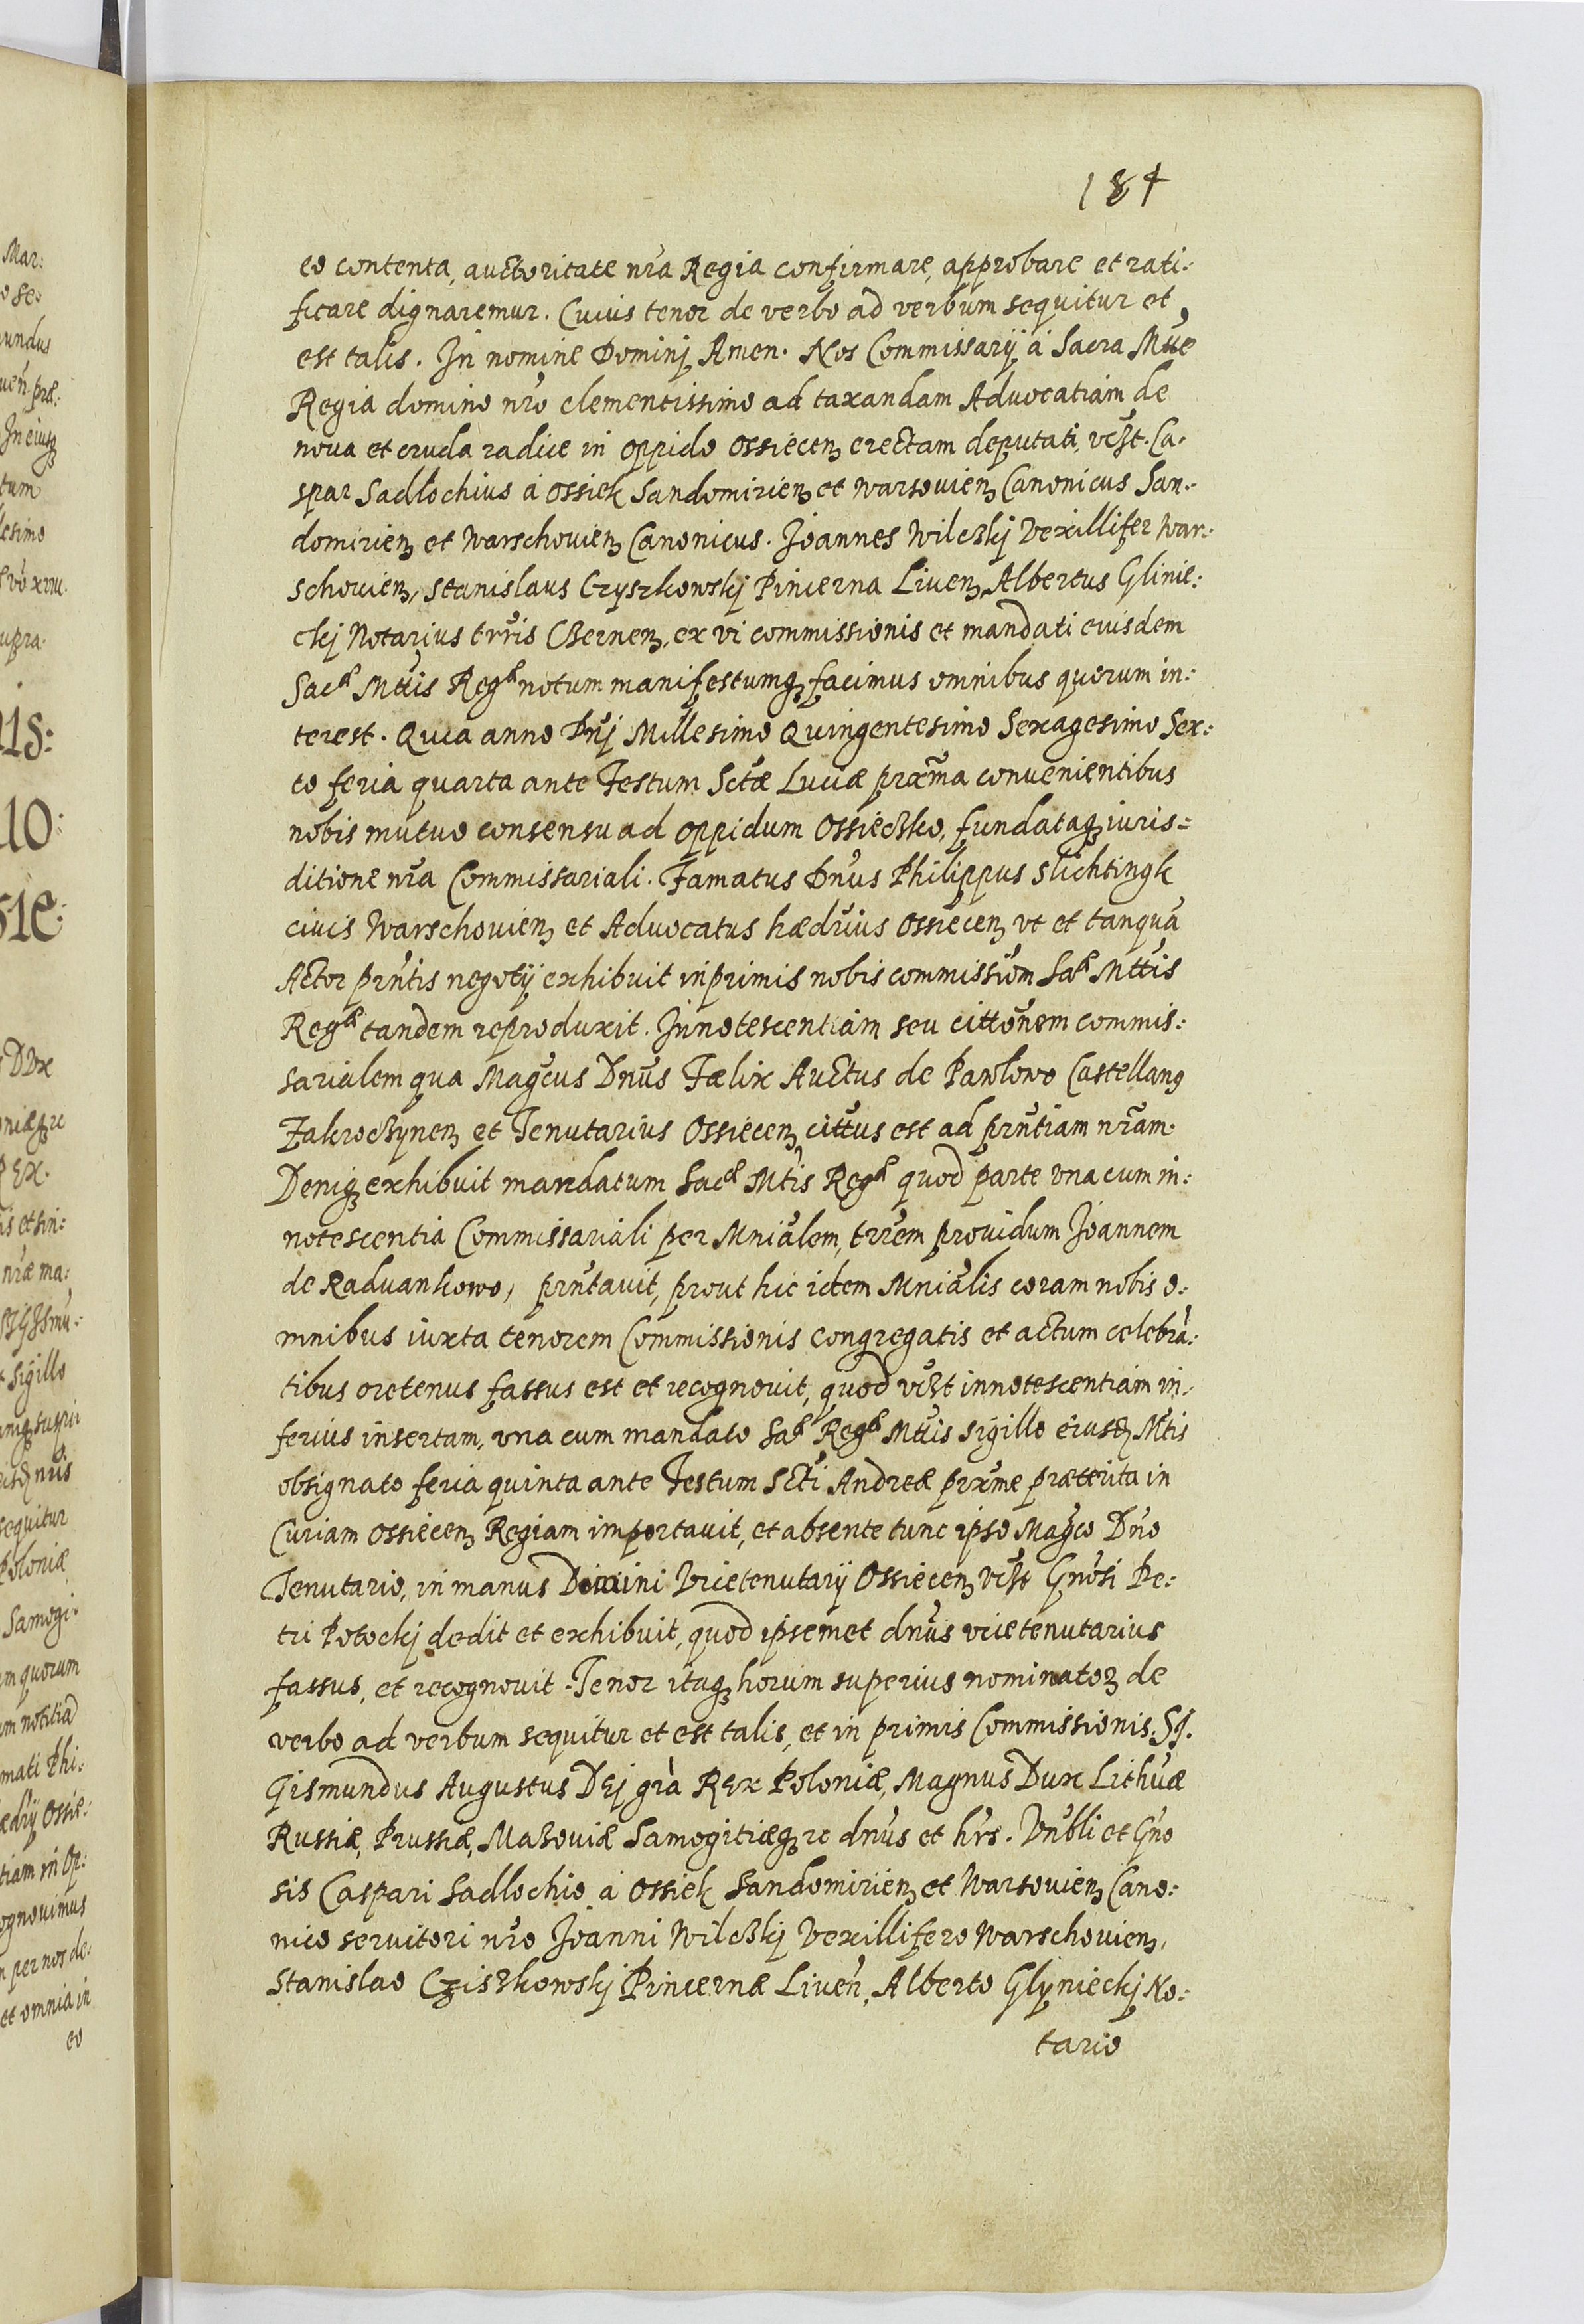 184
eo contenta, auctoritate nrã Regia confirmare, approbare et rati:
ficare dignaremur. Cuius tenor de verbo ad verbum sequitur et
est talis. In nomine Dominj Amen. Nos Commissarij à Sacra Mtte
Regia domino nrõ clementissimo ad taxandam Aduocatiam de
noua et cruda radice in oppido Ossiecenᶎ erectam deputati, vclt. Ca:
spar Sadlochius à Ossiek Sandomirienᶎ et Warsouienᶎ Canonicus San:
domirienᶎ et Warschouienᶎ Canonicus. Joannes Wilczkj Vexillifer War:
schouienᶎ, Stanislaus Czyszkowskj Pincerna Liuenᶎ, Albertus Glinie:
ckj Notarius trrĩs Czernenᶎ, ex vi commissionis et mandati eiusdem
Sacæ Mttis Regæ notum manifestumqᶎ facimus omnibus quorum in:
terest. Quia anno Dnĩ Millesimo Quingentesimo Sexagesimo Sex:
to feria quarta ante Festum Sctæ Luciæ proxma conuenientibus
nobis mutuo consensu ad oppidum Ossieczko, fundataqᶎ iuris:
ditione nrã Commissariali. Famatus Dnũs Philippus Slichtingk
ciuis Warschouienᶎ et Aduocatus hædrius Ossiecenᶎ vt et tanquã
Actor prñtis negotij exhibuit inprimis nobis commissiõm Saæ Mttis
Regæ tandem reproduxit. Innotescentiam seu cittõnem commis:
sarialem qua Magcus Dnũs Fælix Auctus de Pawlowo Castellanꝰ
Zakroczynenᶎ et Tenutarius Ossiecenᶎ cittus est ad prñtiam nrãm.
Deniqᶎ exhibuit mandatum Sacæ Mtis Regæ quod parte vna cum in:
notescentia Commissariali per Mniãlem, trrẽm prouidum Joannem
de Raduankowo, prñtauit, prout hic idem Mniãlis coram nobis o:
mnibus iuxta tenorem Commissionis congregatis et actum celebrã:
tibus oretenus fassus est et recognouit, quod vclt innotescentiam in:
ferius insertam, vna cum mandato Saæ Regæ Mttis sigillo eiusdᶎ Mtis
obsignato feria quinta ante Festum Scti Andreæ prxme præterita in
Curiam Ossiecenᶎ Regiam importauit, et absente tunc ipso Magco Dnõ
Tenutario, in manus Domini Vicetenutarij Ossiecenᶎ vclt Gnõsi Pe:
tri Potockj dedit et exhibuit, quod ipsemet dnũs vicetenutarius
fassus, et recognouit. Tenor itaqᶎ horum superius nominatoꝝ de
verbo ad verbum sequitur et est talis, et in primis Commissionis. Si.
gismundus Augustus Dej grà Rex Poloniæ, Magnus Dux Lithuæ
Russiæ, Prussiæ, Mazouiæ Samogitiæqᶎ ꝛc dnũs et hrs. Vnbli et Gno
sis Caspari Sadlochio à Ossiek Sandomirienᶎ et Warsouienᶎ Cano:
nico seruitori nrõ Joanni Wilczkj Vexillifero Warschouienᶎ,
Stanislao Cziszkowskj Pincernæ Liueñ, Alberto Glynieckj No:
tario